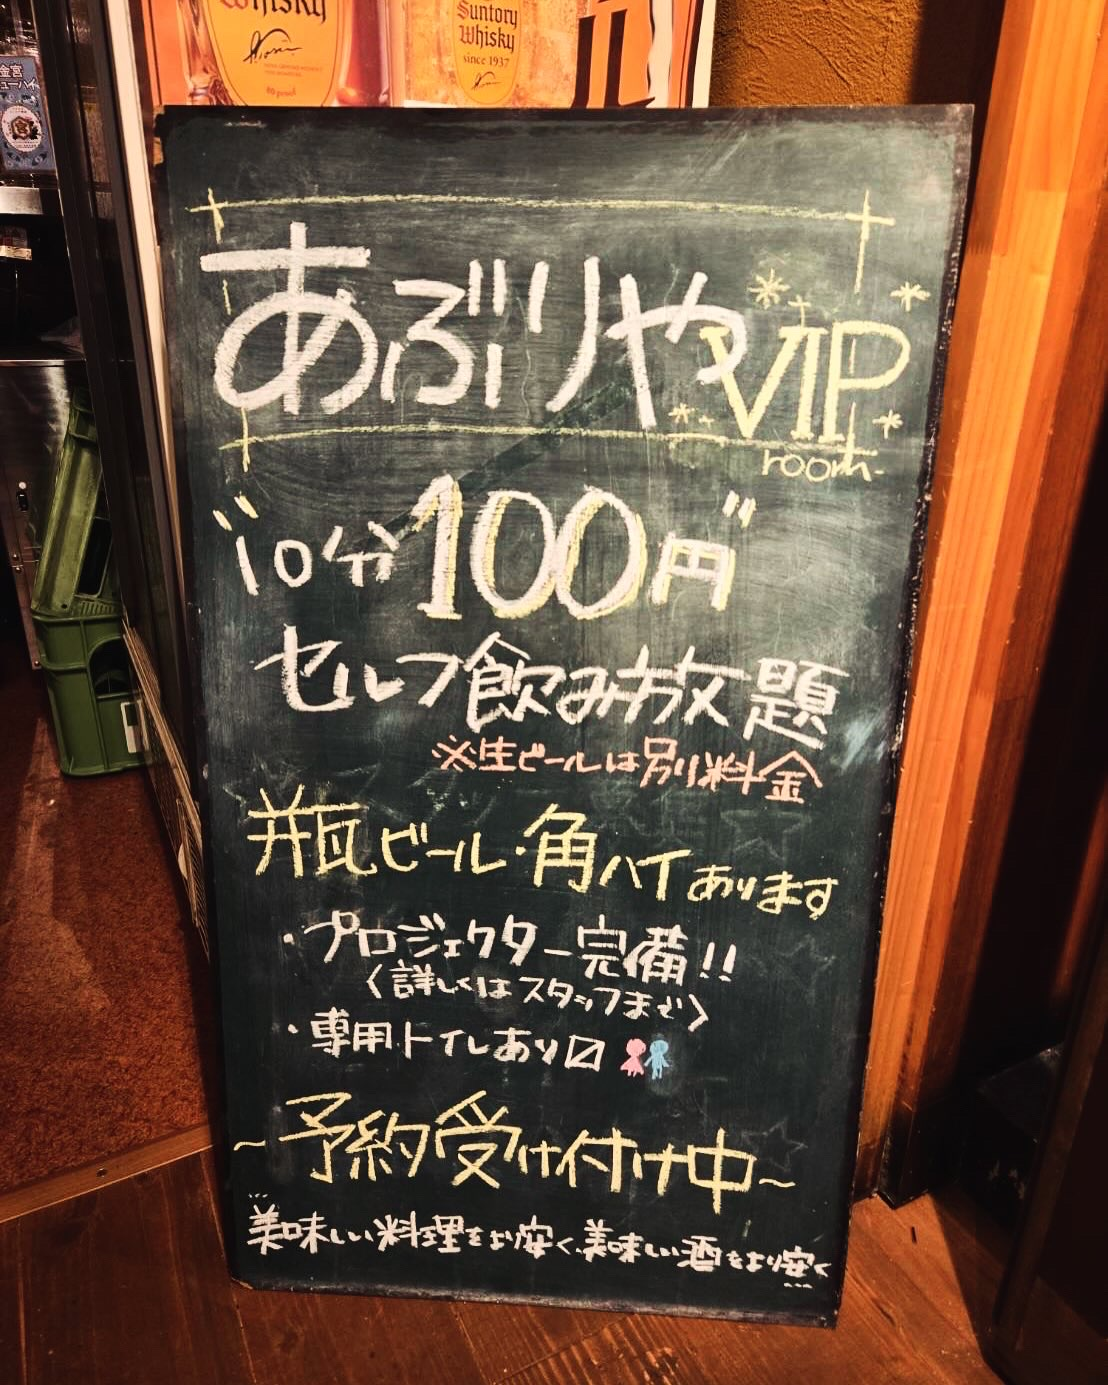 Whisky
80 proof
Suntory
Whisky
since 1937
金宮
あぶりやVIP
room-
"10分100円"
セルフ飲み放題
※生ビールは別料金
瓶ビール・角ハイあります
・プロジェクター完備!!
〈詳しくはスタッフまで〉
・専用トイレあり〼
~予約受け付け中~
美味しい料理をより安く、美味しい酒をより安く…